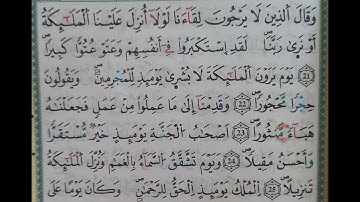 وَقَالَ الَّذِينَ لَا يَرْجُونَ لِقَآءَنَا لَوْلَآ أُنْزِلَ عَلَيْنَا الْمَلَٰٓئِكَةُ
أَوْ نَرَىٰ رَبَّنَا ۗ لَقَدِ اسْتَكْبَرُوا فِىٓ أَنْفُسِهِمْ وَعَتَوْ عُتُوًّا كَبِيرًا
﴿21﴾ يَوْمَ يَرَوْنَ الْمَلَٰٓئِكَةَ لَا بُشْرَىٰ يَوْمَئِذٍ لِلْمُجْرِمِينَ وَيَقُولُونَ
حِجْرًا مَحْجُورًا ﴿22﴾ وَقَدِمْنَآ إِلَىٰ مَا عَمِلُوا مِنْ عَمَلٍ فَجَعَلْنَٰهُ
هَبَآءً مَنْثُورًا ﴿23﴾ أَصْحَٰبُ الْجَنَّةِ يَوْمَئِذٍ خَيْرٌ مُسْتَقَرًّا
وَأَحْسَنُ مَقِيلًا ﴿24﴾ وَيَوْمَ تَشَقَّقُ السَّمَآءُ بِالْغَمَٰمِ وَنُزِّلَ الْمَلَٰٓئِكَةُ
تَنْزِيلًا ﴿25﴾ الْمُلْكُ يَوْمَئِذٍ الْحَقُّ لِلرَّحْمَٰنِ ۚ وَكَانَ يَوْمًا عَلَى